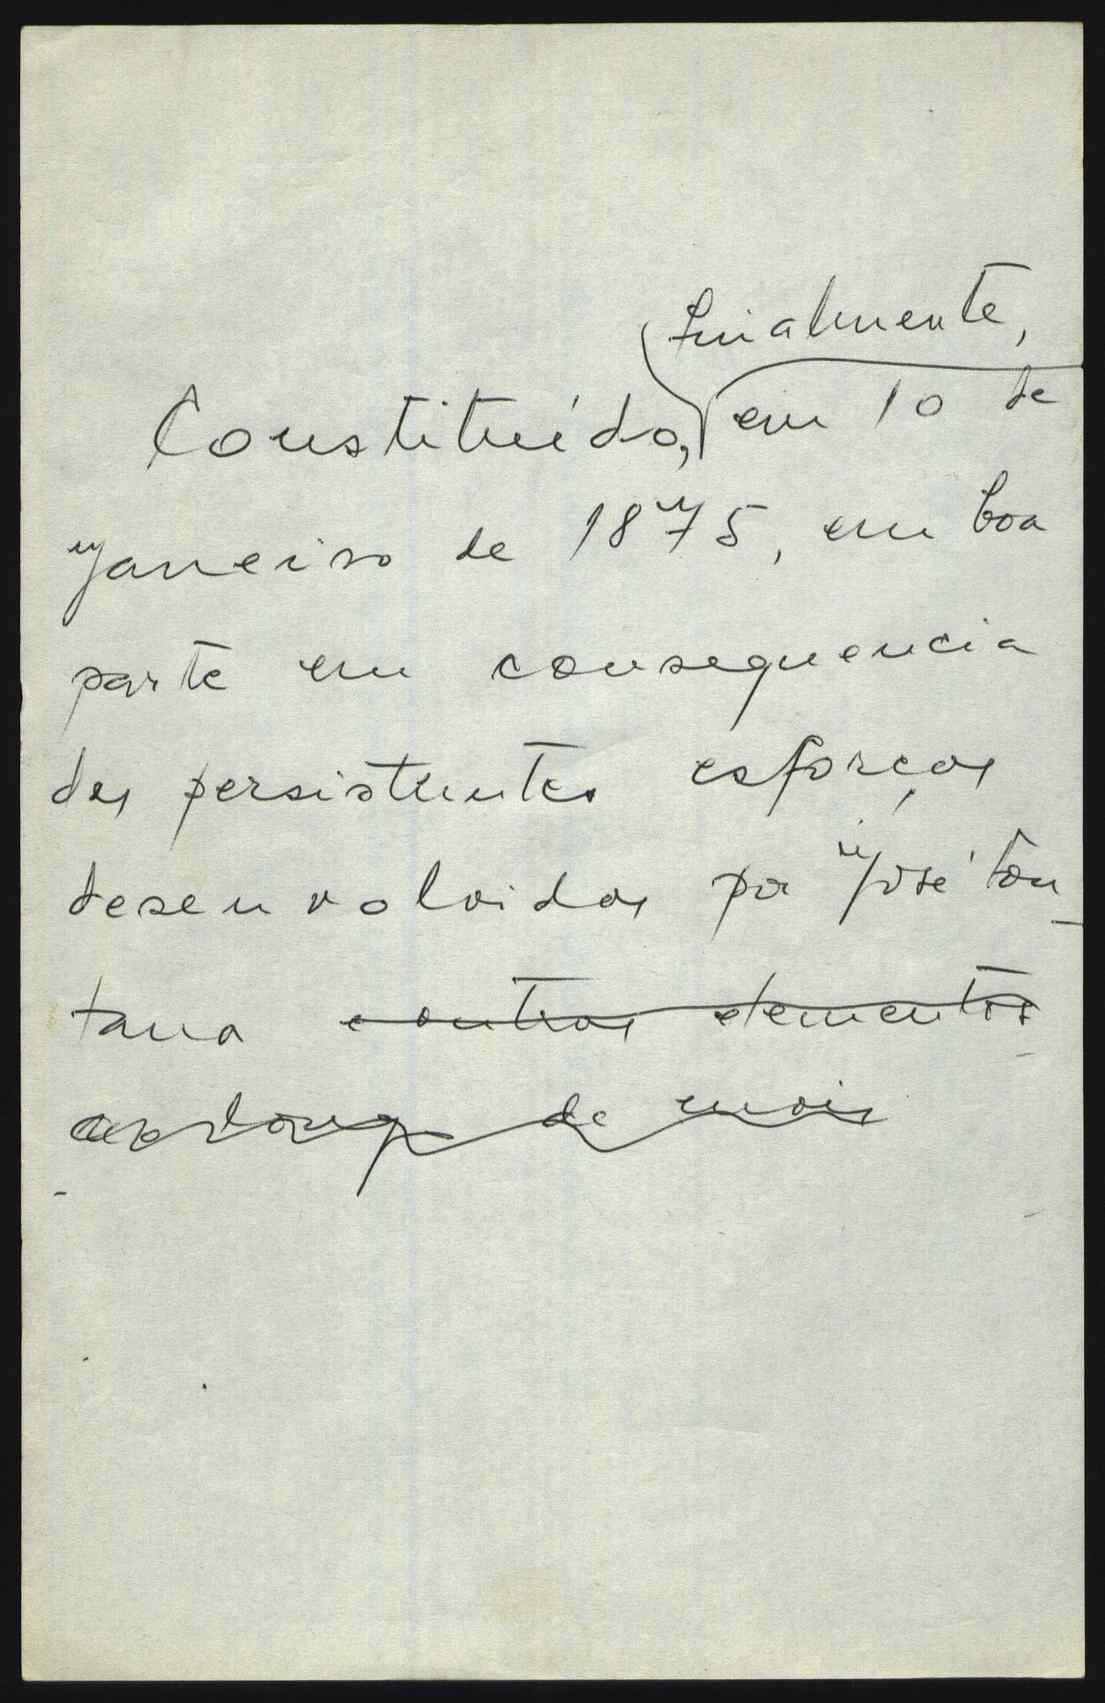 finalmente,
Constituído, em 10 de
Janeiro de 1875, em boa
parte em consequencia
dos persistentes esforços
desenvolvidos por José Fon-
tana e outros elementos
ao longo de mais